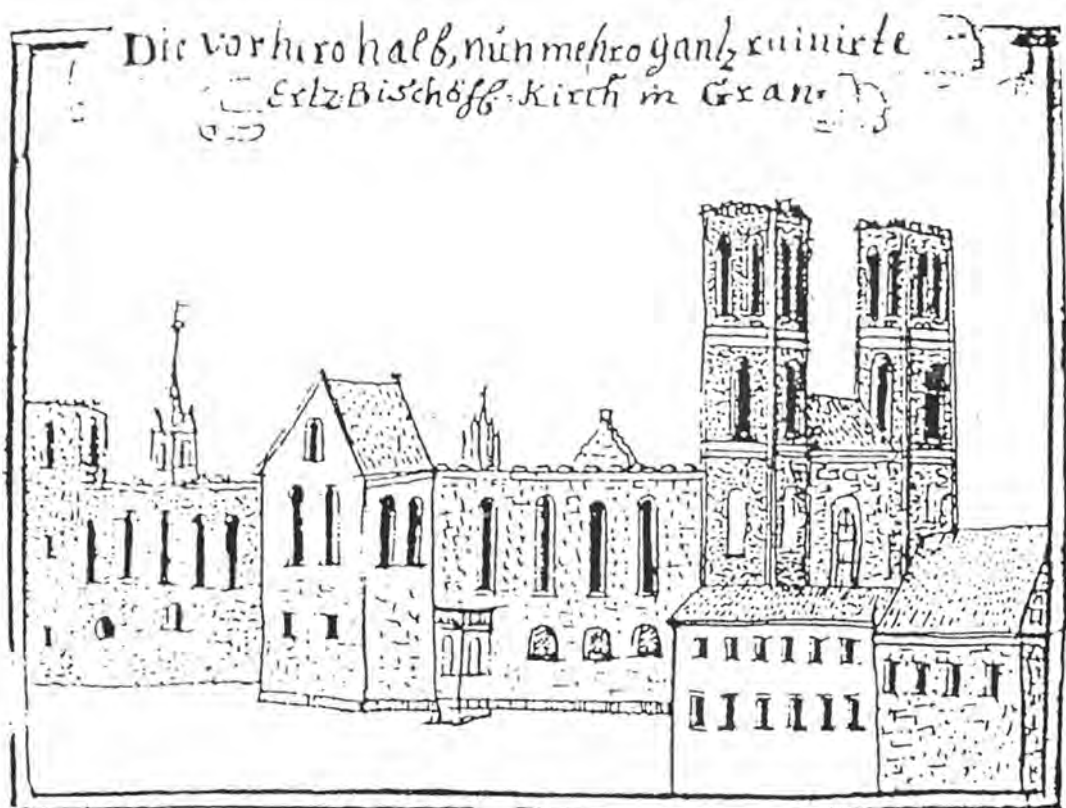 Die vorhero halb, nún mehro gantz ruinirte
Ertz-Bischöff-Kirch in Gran.